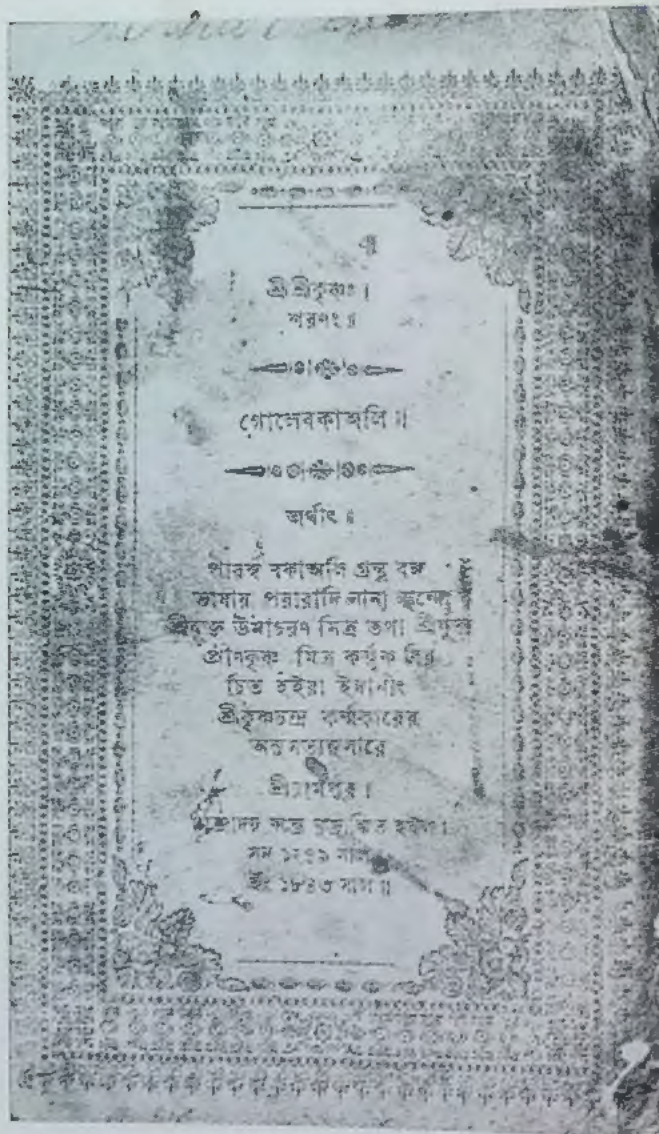 শ্রীশ্রীকৃষ্ণঃ।
শরণং॥
গোলেবকাঅলি॥
অর্থাৎ॥
পারস্য বকাঅলি গ্রন্থ বঙ্গ
ভাষায় পয়ারাদি নানা ছন্দে
শ্রীযুক্ত উমাচরণ মিত্র তথা শ্রীযুক্ত
প্রাণকৃষ্ণ মিত্র কর্ত্তৃক বির
চিত হইয়া ইদানীং
শ্রীকৃষ্ণচন্দ্র কর্ম্মকারের
অনুমত্যনুসারে
শ্রীরামপুর।
যন্ত্রে মুদ্রাঙ্কিত হইল।
সন ১২৪৯ সাল
ইং ১৮৪৩ সাল॥